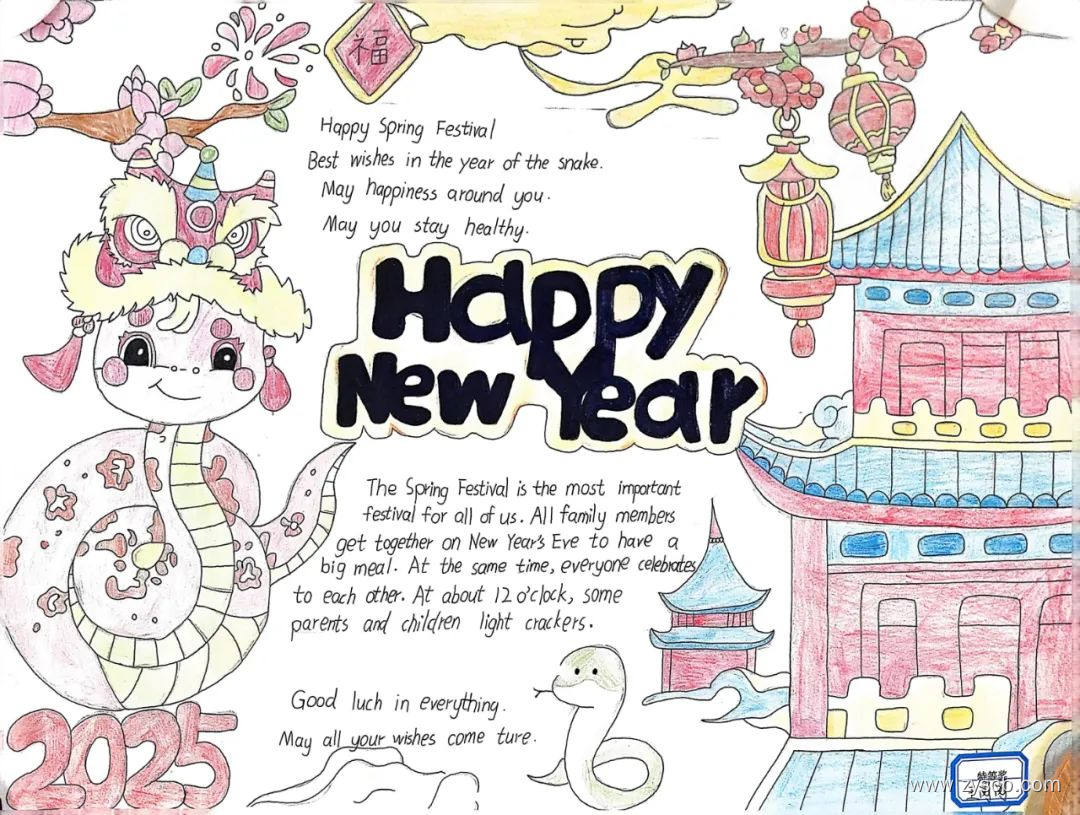 福
Happy Spring Festival
Best wishes in the year of the snake.
May happiness around you.
May you stay healthy.
Happy
New Year
The Spring Festival is the most important
festival for all of us. All family members
get together on New Year's Eve to have a
big meal. At the same time, everyone celebrates
to each other. At about 12 o'clock, some
parents and children light crackers.
Good luch in everything.
May all your wishes come ture.
2025
特等奖
www.zyscp.com